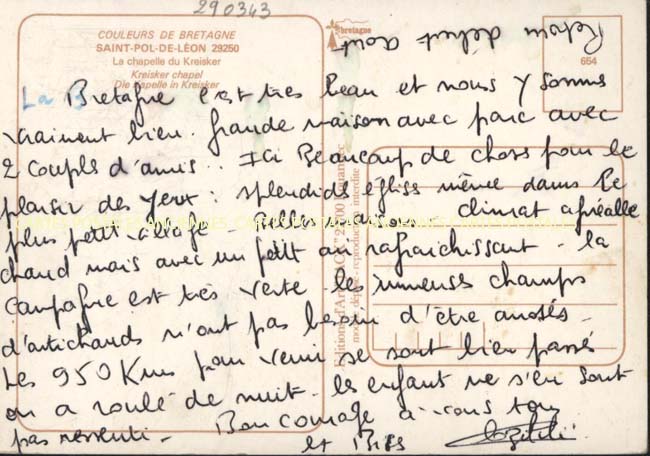 290343
COULEURS DE BRETAGNE
SAINT-POL-DE-LÉON 29250
La chapelle du Kreisker
Kreisker chapel
Die Kapelle in Kreisker
bretagne
654
Retour début aout
La Bretagne est très beau et nous y sommes
vraiment bien. Grande maison avec parc avec
2 coupls d'amis.. Ici Beaucoup de choses pour le
plaisir des yeux : splendide église même dans le
plus petit village - Belles maisons - climat agréable
chaud mais avec un petit air rafraichissant - la
campagne est très verte - les immenses champs
d'artichauds n'ont pas besoin d'être arrosés -
Les 950 Kms pour venir se sont bien passés
on a roulé de nuit - les enfant ne s'en sont
pas ressenti - Bon courage à vous tous
et Bises